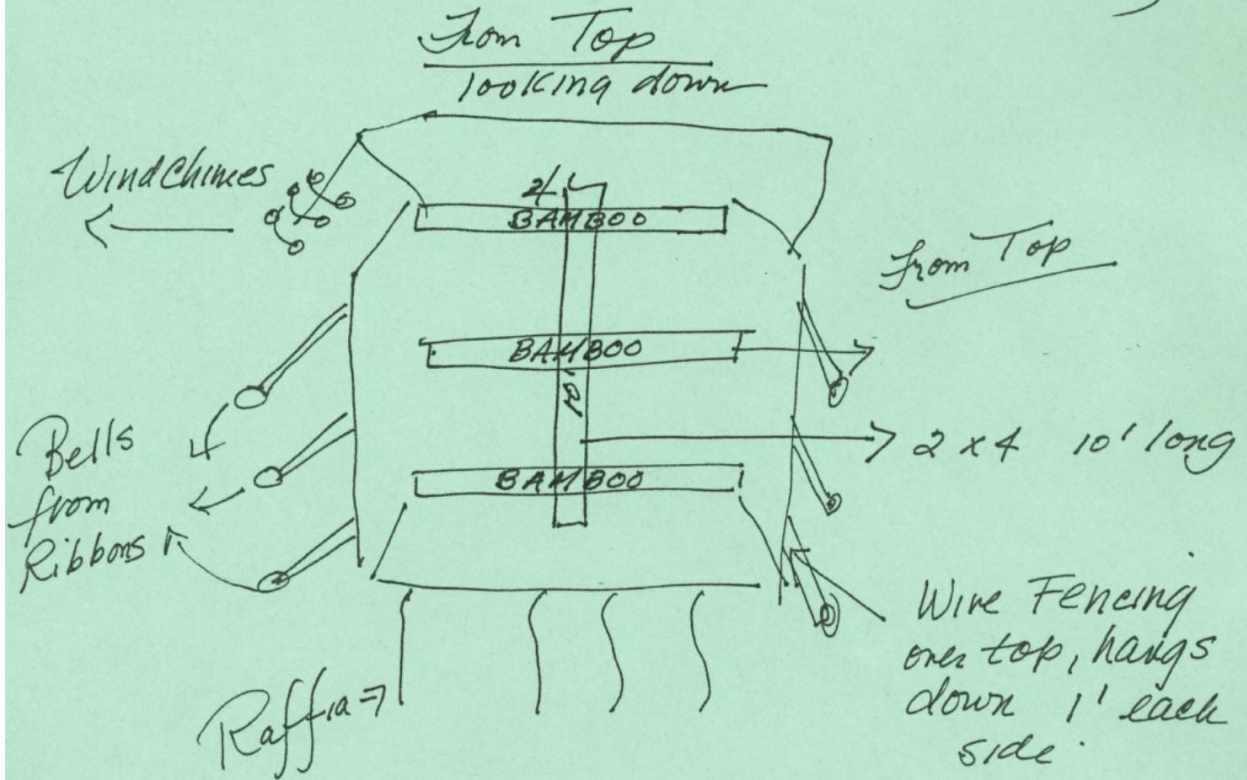 From Top
looking down
Windchimes
2/
BAMBOO
From Top
BAMBOO
10'
2 x 4 10' long
Bells
from
Ribbons
BAMBOO
Wire Fencing
over top, hangs
down 1' each
side.
Raffia